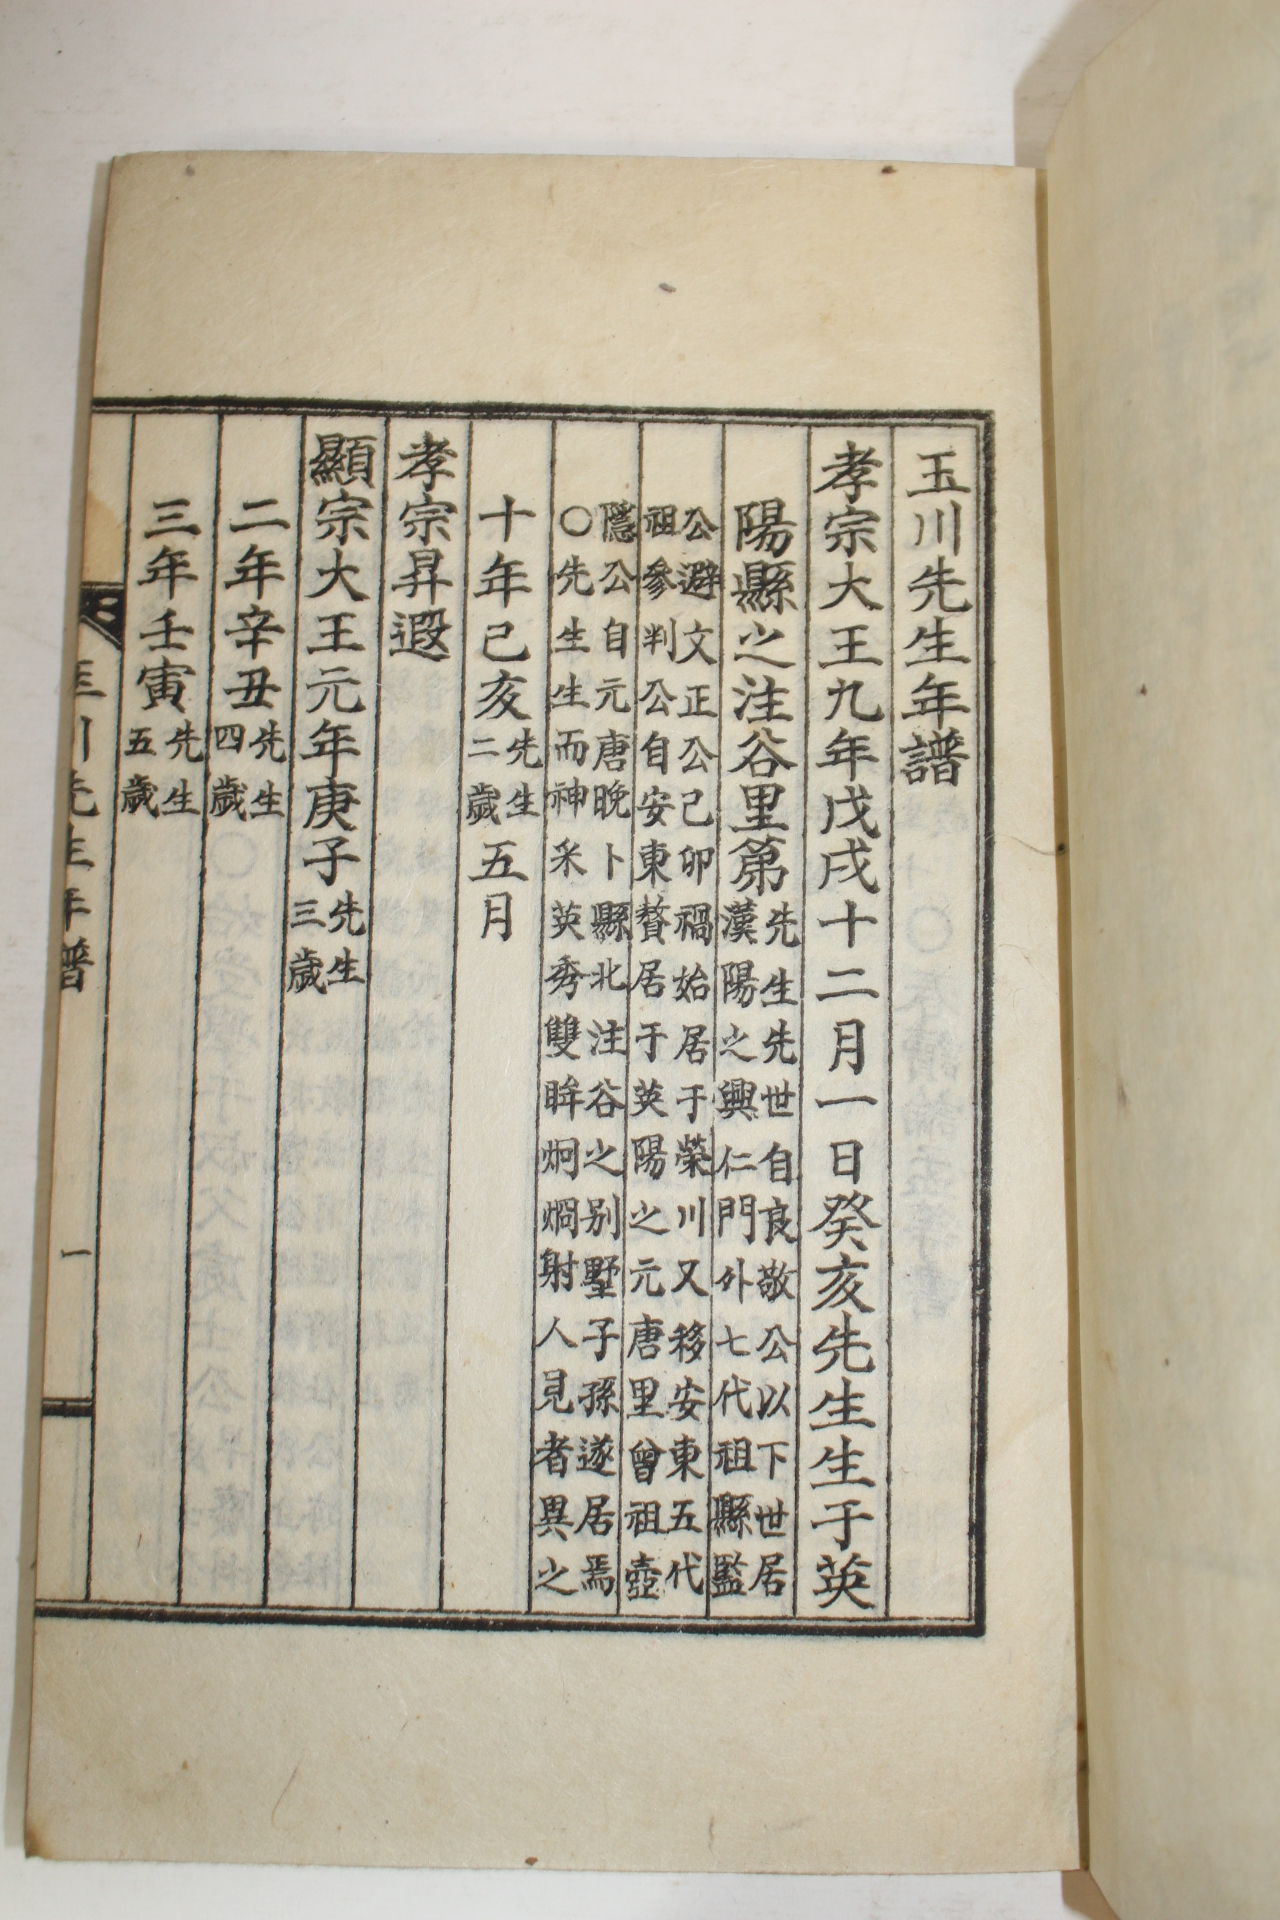 玉川先生年譜
孝宗大王九年戊戌十二月一日癸亥先生生于英
陽縣之注谷里第
先生先世自良敬公以下世居
漢陽之興仁門外七代祖縣監
公避文正公己卯禍始居于榮川又移安東五代
祖參判公自安東贅居于英陽之元唐里曾祖壺
隱公自元唐晩卜縣北注谷之別墅子孫遂居焉
○先生生而神采英秀雙眸炯烱射人見者異之
十年己亥先生二歲五月
孝宗昇遐
顯宗大王元年庚子先生三歲
二年辛丑先生四歲
三年壬寅先生五歲
玉川先生年譜
一